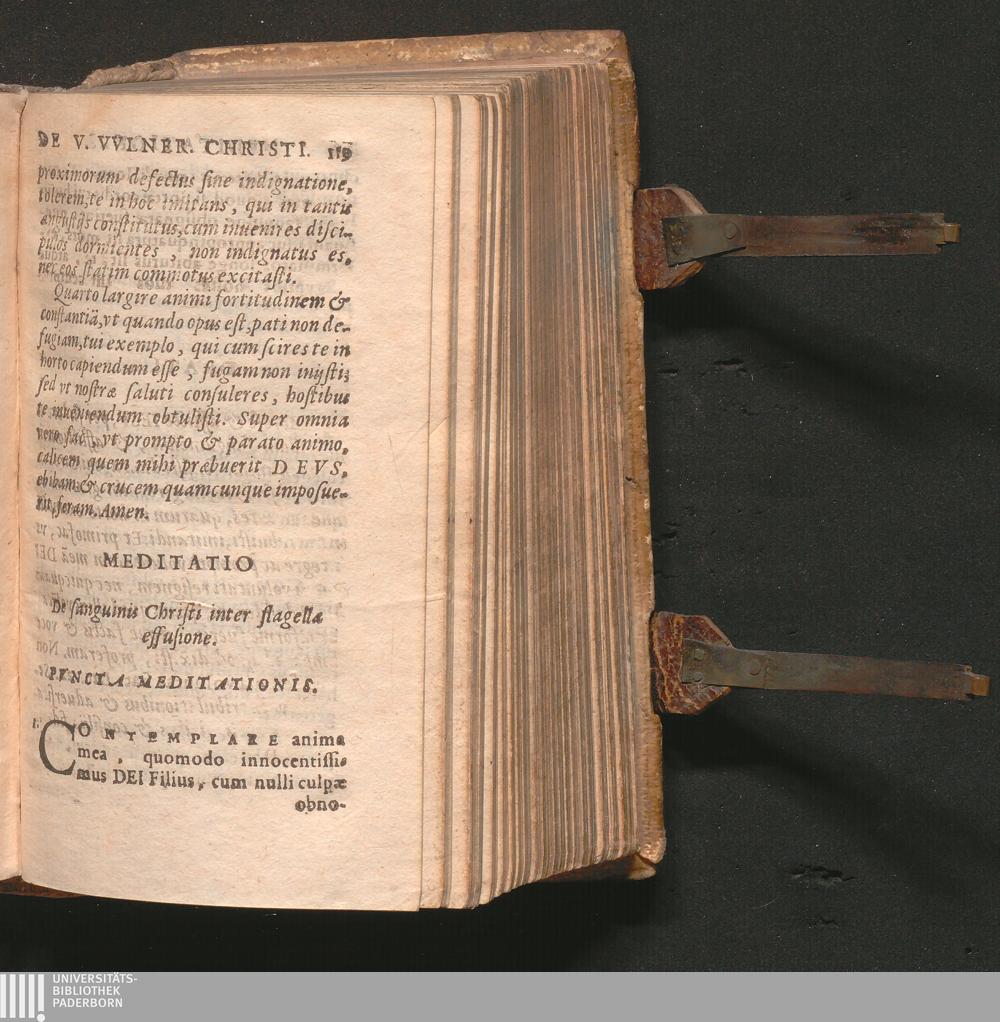 DE V. VVLNER. CHRISTI. 119
proximorum defectus sine indignatione,
tolerem, te in hoc imitans, qui in tantis
angustijs constitutus, cum inuenires disci-
pulos dormientes, non indignatus es,
nec eos statim commotus excitasti.
Quarto largire animi fortitudinem &
constantiā, vt quando opus est, pati non de-
fugiam, tui exemplo, qui cum scires te in
horto capiendum esse, fugam non inijsti;
sed vt nostræ saluti consuleres, hostibus
te inueniendum obtulisti. Super omnia
vero fac, vt prompto & parato animo,
calicem quem mihi præbuerit DEVS,
ebibam & crucem quamcunque imposue-
rit, feram. Amen.
MEDITATIO
De sanguinis Christi inter flagella
effusione.
PVNCTA MEDITATIONIS.
1. CONTEMPLARE anima
mea, quomodo innocentissi-
mus DEI Filius, cum nulli culpæ
obno-
UNIVERSITÄTS-
BIBLIOTHEK
PADERBORN